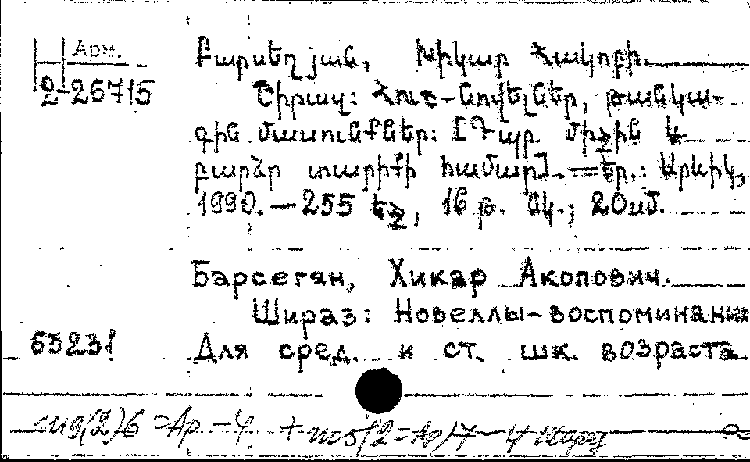 Арм.
2-26715
Բարսեղյան, Խիկար Հակոբի.
Շիրազ: Հուշ-նովելներ, թանկա-
գին մասունքներ: [Դպր. միջին և
բարձր տարիքի համար]. — Եր.: Արևիկ,
1990. — 255 էջ, 16 թ. նկ.; 20սմ.
Барсегян, Хикар Акопович.
Шираз: Новеллы-воспоминания
65231
Для сред. и ст. шк. возраста